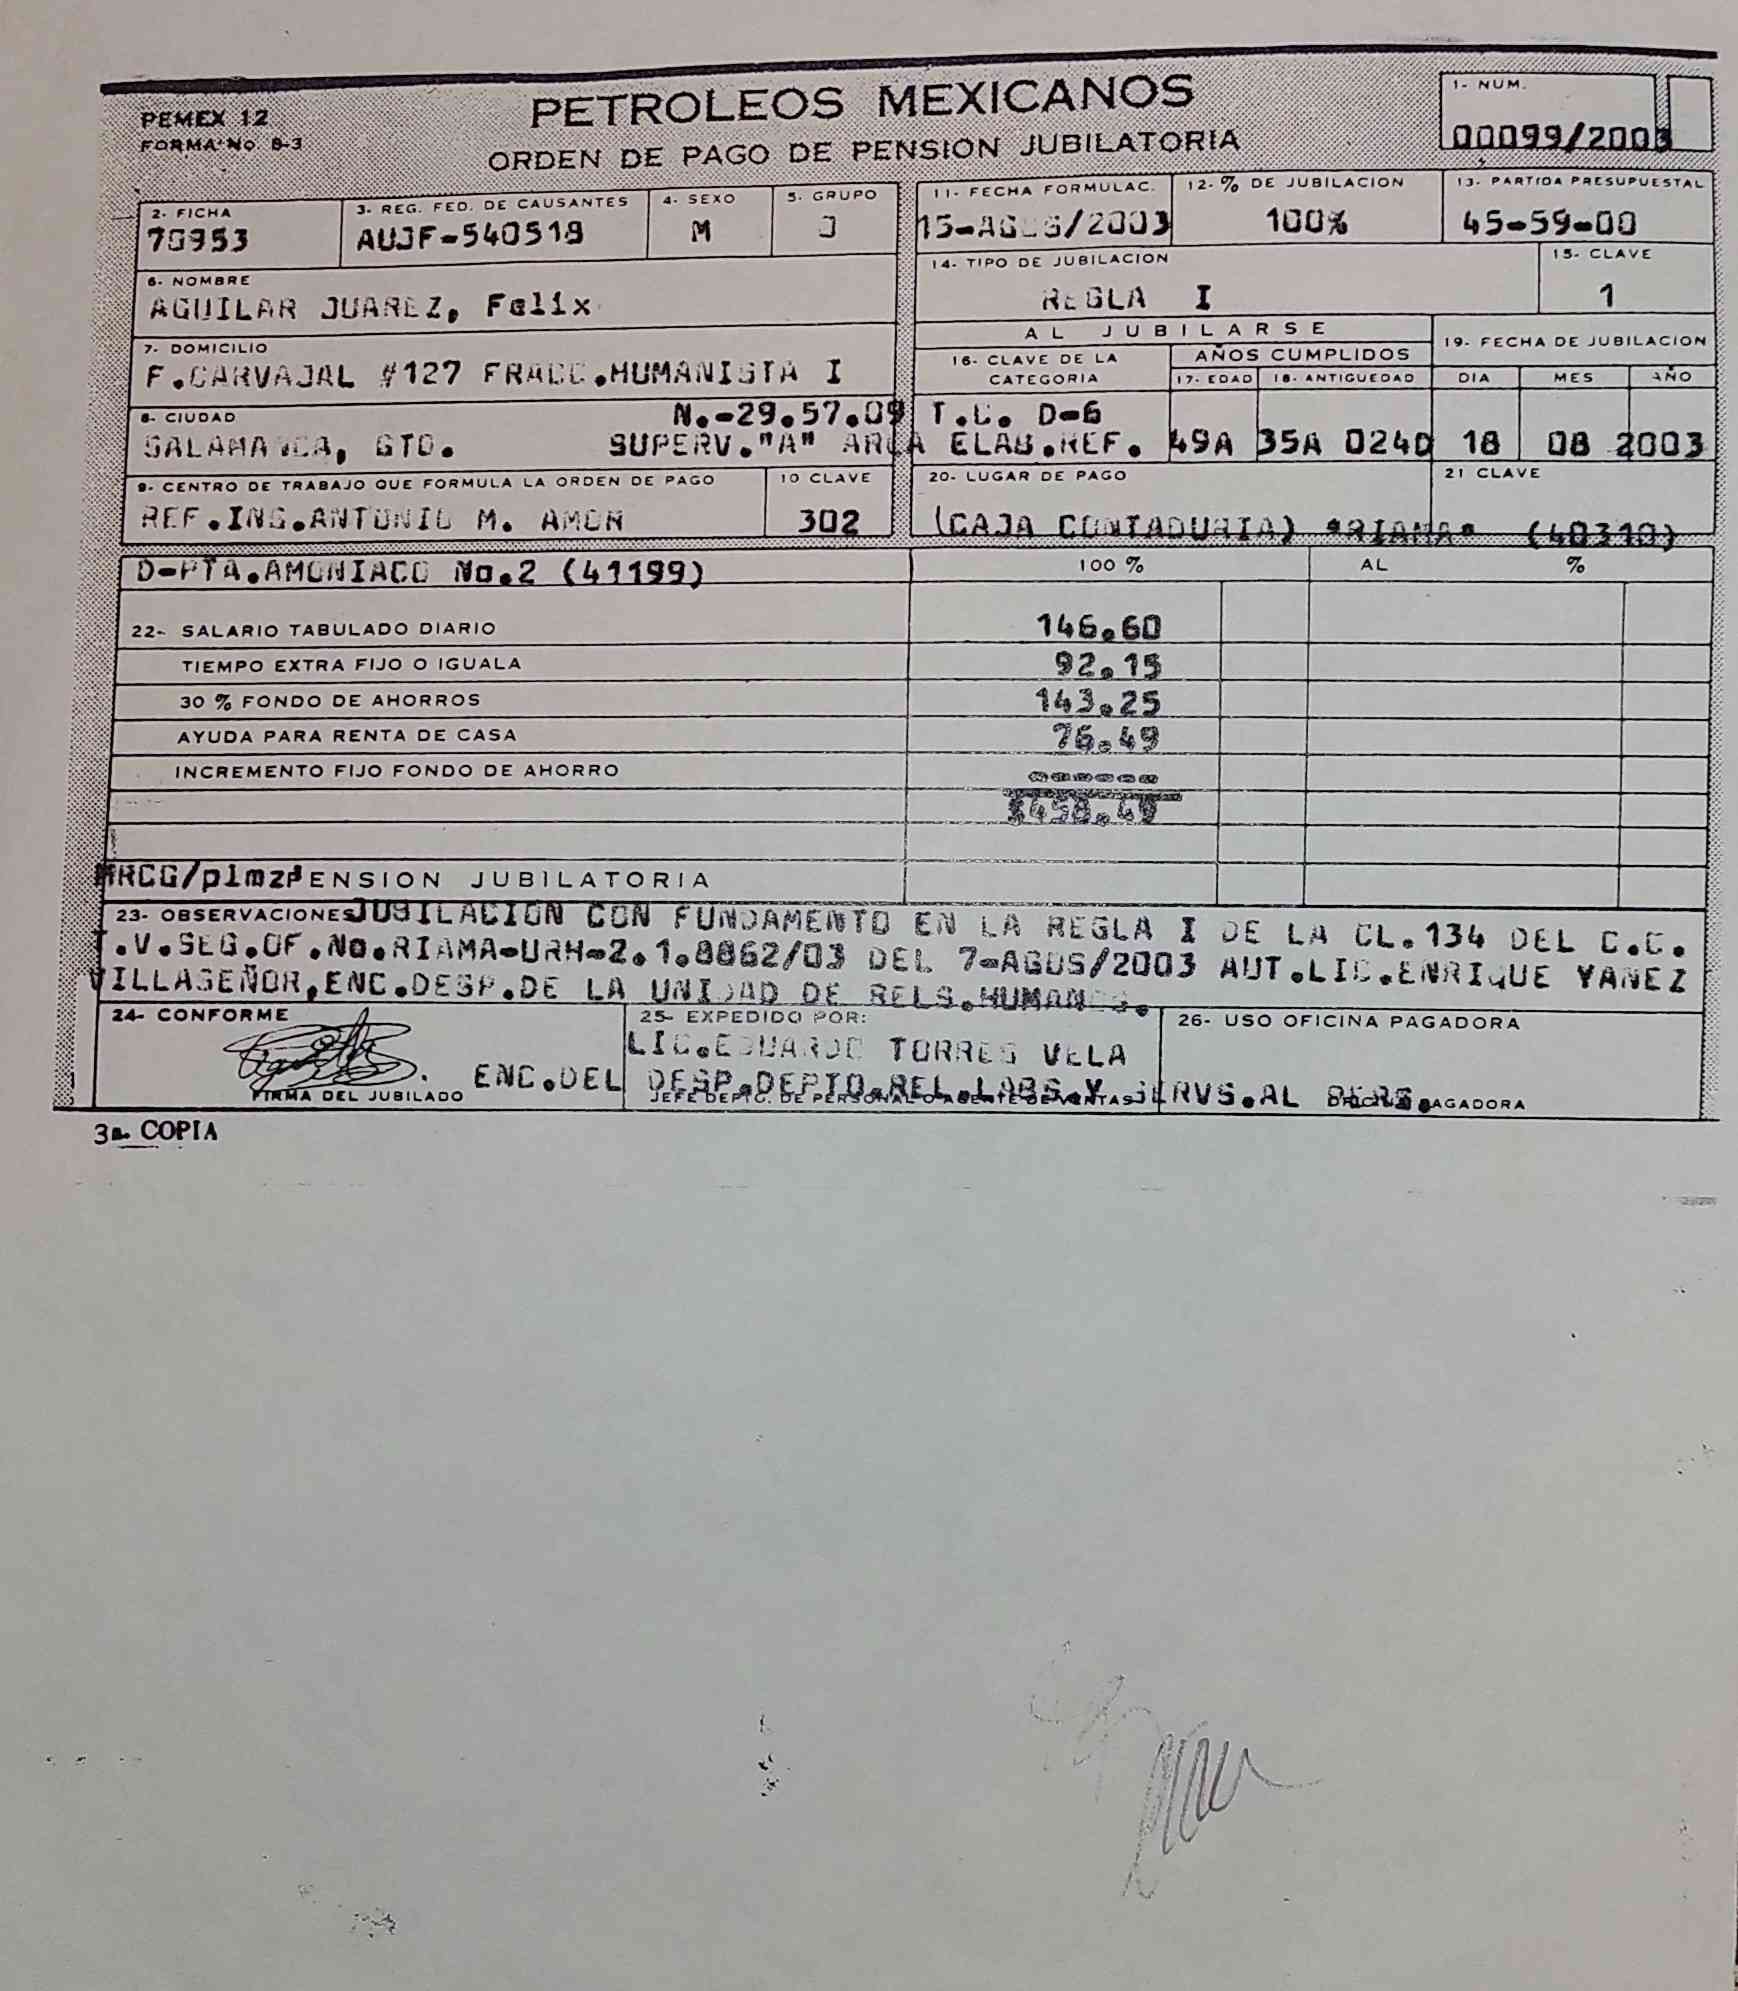 PEMEX 12
FORMA No. 8-3
PETROLEOS MEXICANOS
ORDEN DE PAGO DE PENSION JUBILATORIA
1- NUM.
00099/2003
2- FICHA
3- REG. FED. DE CAUSANTES
4- SEXO
5- GRUPO
11- FECHA FORMULAC.
12- % DE JUBILACION
13- PARTIDA PRESUPUESTAL
70953
AUJF-540518
M
J
15-AGUS/2003
100%
45-59-00
6- NOMBRE
AGUILAR JUAREZ, Felix
14- TIPO DE JUBILACION
REGLA I
15- CLAVE
1
7- DOMICILIO
F.CARVAJAL #127 FRACC.HUMANISTA I
AL JUBILARSE
16- CLAVE DE LA CATEGORIA
AÑOS CUMPLIDOS
17- EDAD
18- ANTIGUEDAD
19- FECHA DE JUBILACION
DIA MES AÑO
8- CIUDAD
N.-29.57.09 T.C. D-6
SALAMANCA, GTO. SUPERV."A" AREA ELAB.REF. 49A 35A 024D 18 08 2003
9- CENTRO DE TRABAJO QUE FORMULA LA ORDEN DE PAGO
10 CLAVE
20- LUGAR DE PAGO
21 CLAVE
REF.ING.ANTONIO M. AMOR
302
(CAJA CONTADURIA) "RIAMA" (40310)
D-PTA.AMONIACO No.2 (41199)
100 %
AL %
22- SALARIO TABULADO DIARIO 146.60
TIEMPO EXTRA FIJO O IGUALA 92.15
30 % FONDO DE AHORROS 143.25
AYUDA PARA RENTA DE CASA 76.49
INCREMENTO FIJO FONDO DE AHORRO ------
$458.49
MRCG/plmz PENSION JUBILATORIA
23- OBSERVACIONES JUBILACION CON FUNDAMENTO EN LA REGLA I DE LA CL.134 DEL C.C.
T.V.SEG.OF.No.RIAMA-URH-2.1.8862/03 DEL 7-AGUS/2003 AUT.LIC.ENRIQUE YAÑEZ
VILLASEÑOR,ENC.DESP.DE LA UNIDAD DE RELS.HUMANAS.
24- CONFORME
25- EXPEDIDO POR:
26- USO OFICINA PAGADORA
LIC.EDUARDO TORRES VELA
ENC.DEL DESP.DEPTO.REL.LABS.Y SERVS.AL PERS.
FIRMA DEL JUBILADO
JEFE DEPTO. DE PERSONAL O AGENTE DE VENTAS
PAGADORA
3a. COPIA